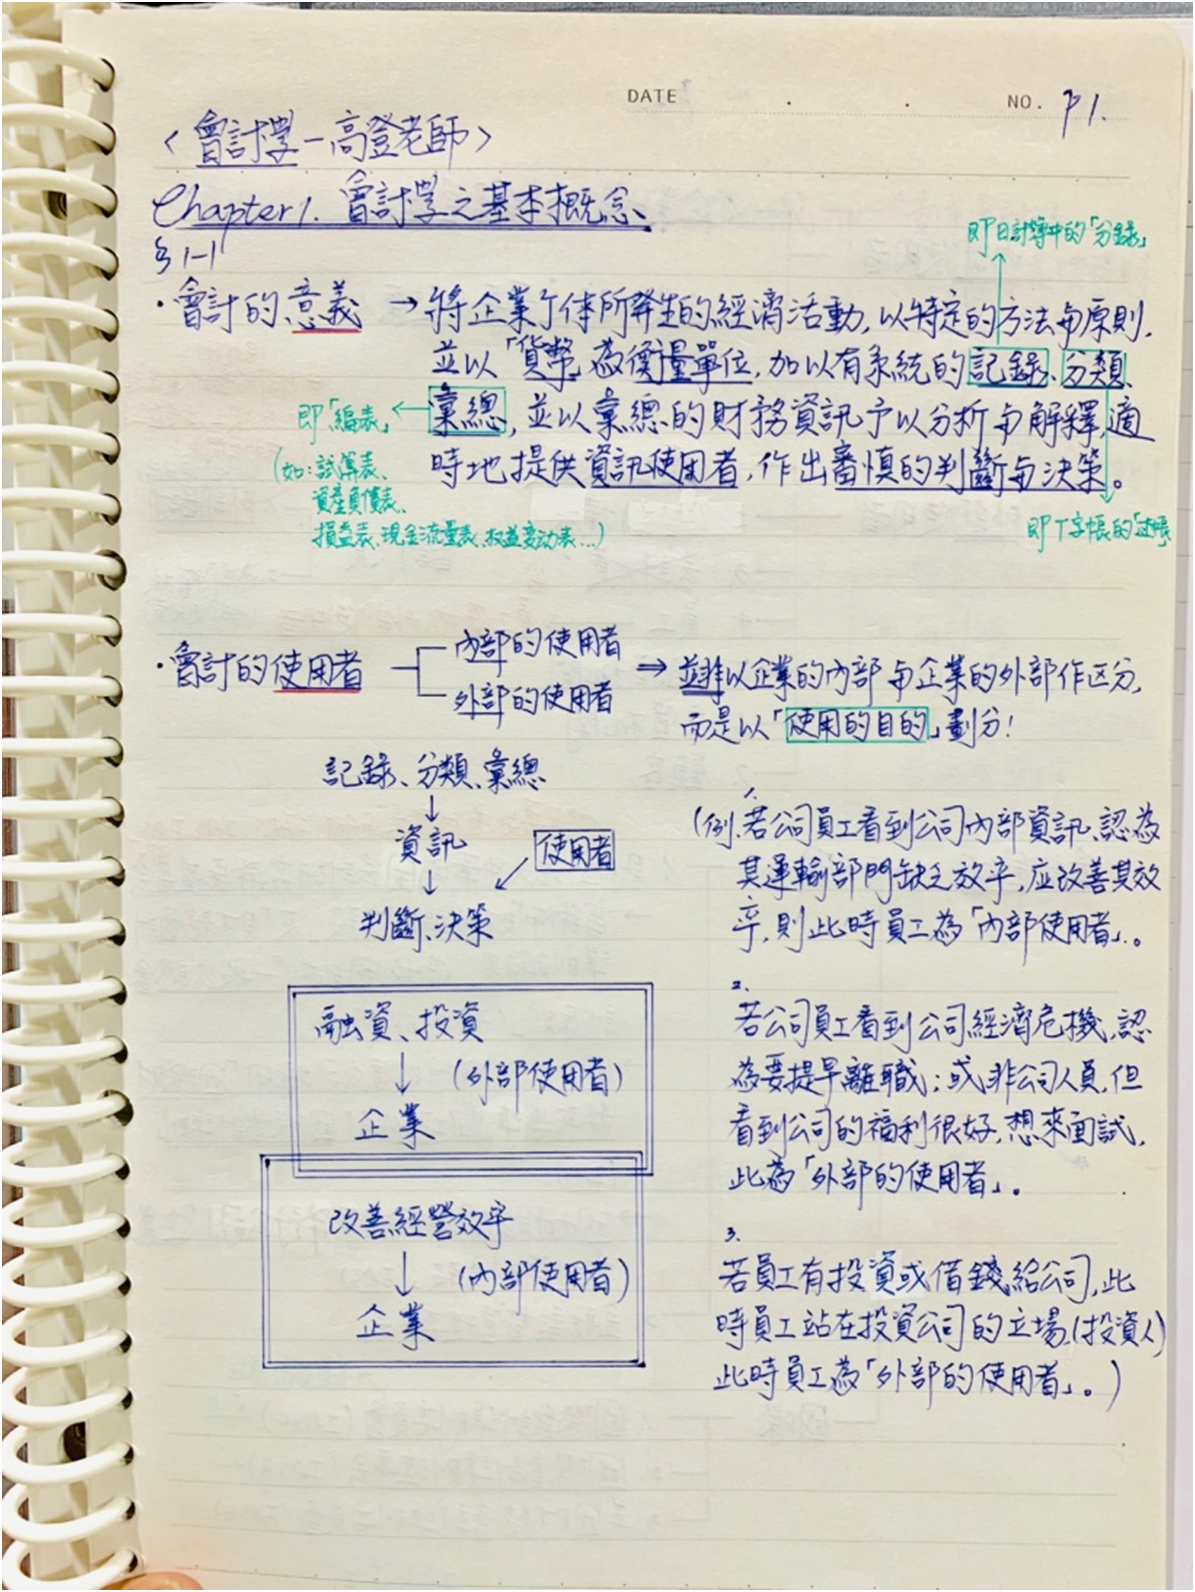 DATE . . NO. P1.
〈會計學-高登老師〉
Chapter1. 會計學之基本概念
§1-1
即日計簿中的「分錄」
・會計的意義 → 將企業个体所發生的經濟活動，以特定的方法與原則，
並以「貨幣」為衡量單位，加以有系統的記錄、分類、
彙總，並以彙總的財務資訊予以分析與解釋，適
時地提供資訊使用者，作出審慎的判斷與決策。
即「編表」←
(如：試算表、
資產負債表、
損益表、現金流量表、权益变动表…)
即T字帳的「过帳」
・會計的使用者
內部的使用者
外部的使用者
⇒ 並非以企業的內部與企業的外部作区分，
而是以「使用的目的」劃分！
記錄、分類、彙總
↓
資訊
使用者
↓
判斷、決策
融資、投資
↓ (外部使用者)
企業
改善經營效率
↓ (內部使用者)
企業
1.
(例、若公司員工看到公司內部資訊、認為
其運輸部門缺乏效率，应改善其效
率，則此時員工為「內部使用者」。
2.
若公司員工看到公司經濟危機，認
為要提早離職；或非公司人員，但
看到公司的福利很好，想來面試，
此為「外部的使用者」。
3.
若員工有投資或借錢給公司，此
時員工站在投資公司的立場，(投資人)
此時員工為「外部的使用者」。)